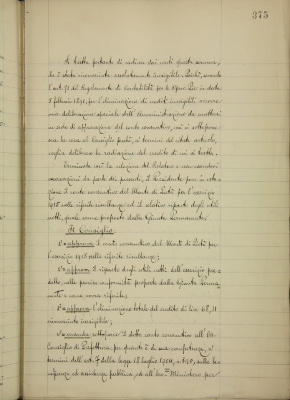 375
Si tratta pertanto di radiare dai conti questa somma,
che è stata riconosciuta assolutamente inesigibile e poiché, secondo
l'art. 71 del Regolamento di Contabilità per le Opere Pie in data
5 febbraio 1891, per l'eliminazione di crediti inesigibili occorre
una deliberazione speciale dell'Amministrazione da emettersi
in sede di approvazione del conto consuntivo, così si sottopone
ora la cosa al Consiglio perché, ai termini del citato articolo,
voglia deliberare la radiazione del credito di cui si tratta.
Terminata così la relazione del Relatore e non essendovi
osservazioni da parte dei presenti, il Presidente pone in vota-
zione il conto consuntivo del Monte di Pietà per l'esercizio
1915 nelle cifre risultanze ed il relativo riparto degli utili
netti, quale venne proposto dalla Giunta Permanente.
Il Consiglio
1° approva il conto consuntivo del Monte di Pietà per
l'esercizio 1915 nelle riferite risultanze;
2° approva il riparto degli utili netti dell'esercizio pre-
detto, nella precisa conformità proposta dalla Giunta Perma-
nente e come sopra riferita;
3° approva l'eliminazione totale del credito di lire 68,11
riconosciuto inesigibile;
4° manda sottoporre il detto conto consuntivo all'On.
Consiglio di Prefettura, per quanto è di sua competenza, ai
termini dell'art. 7 della legge 18 luglio 1904, n. 390, sulla be-
neficenza ed assistenza pubblica, ed all'On. Ministero per